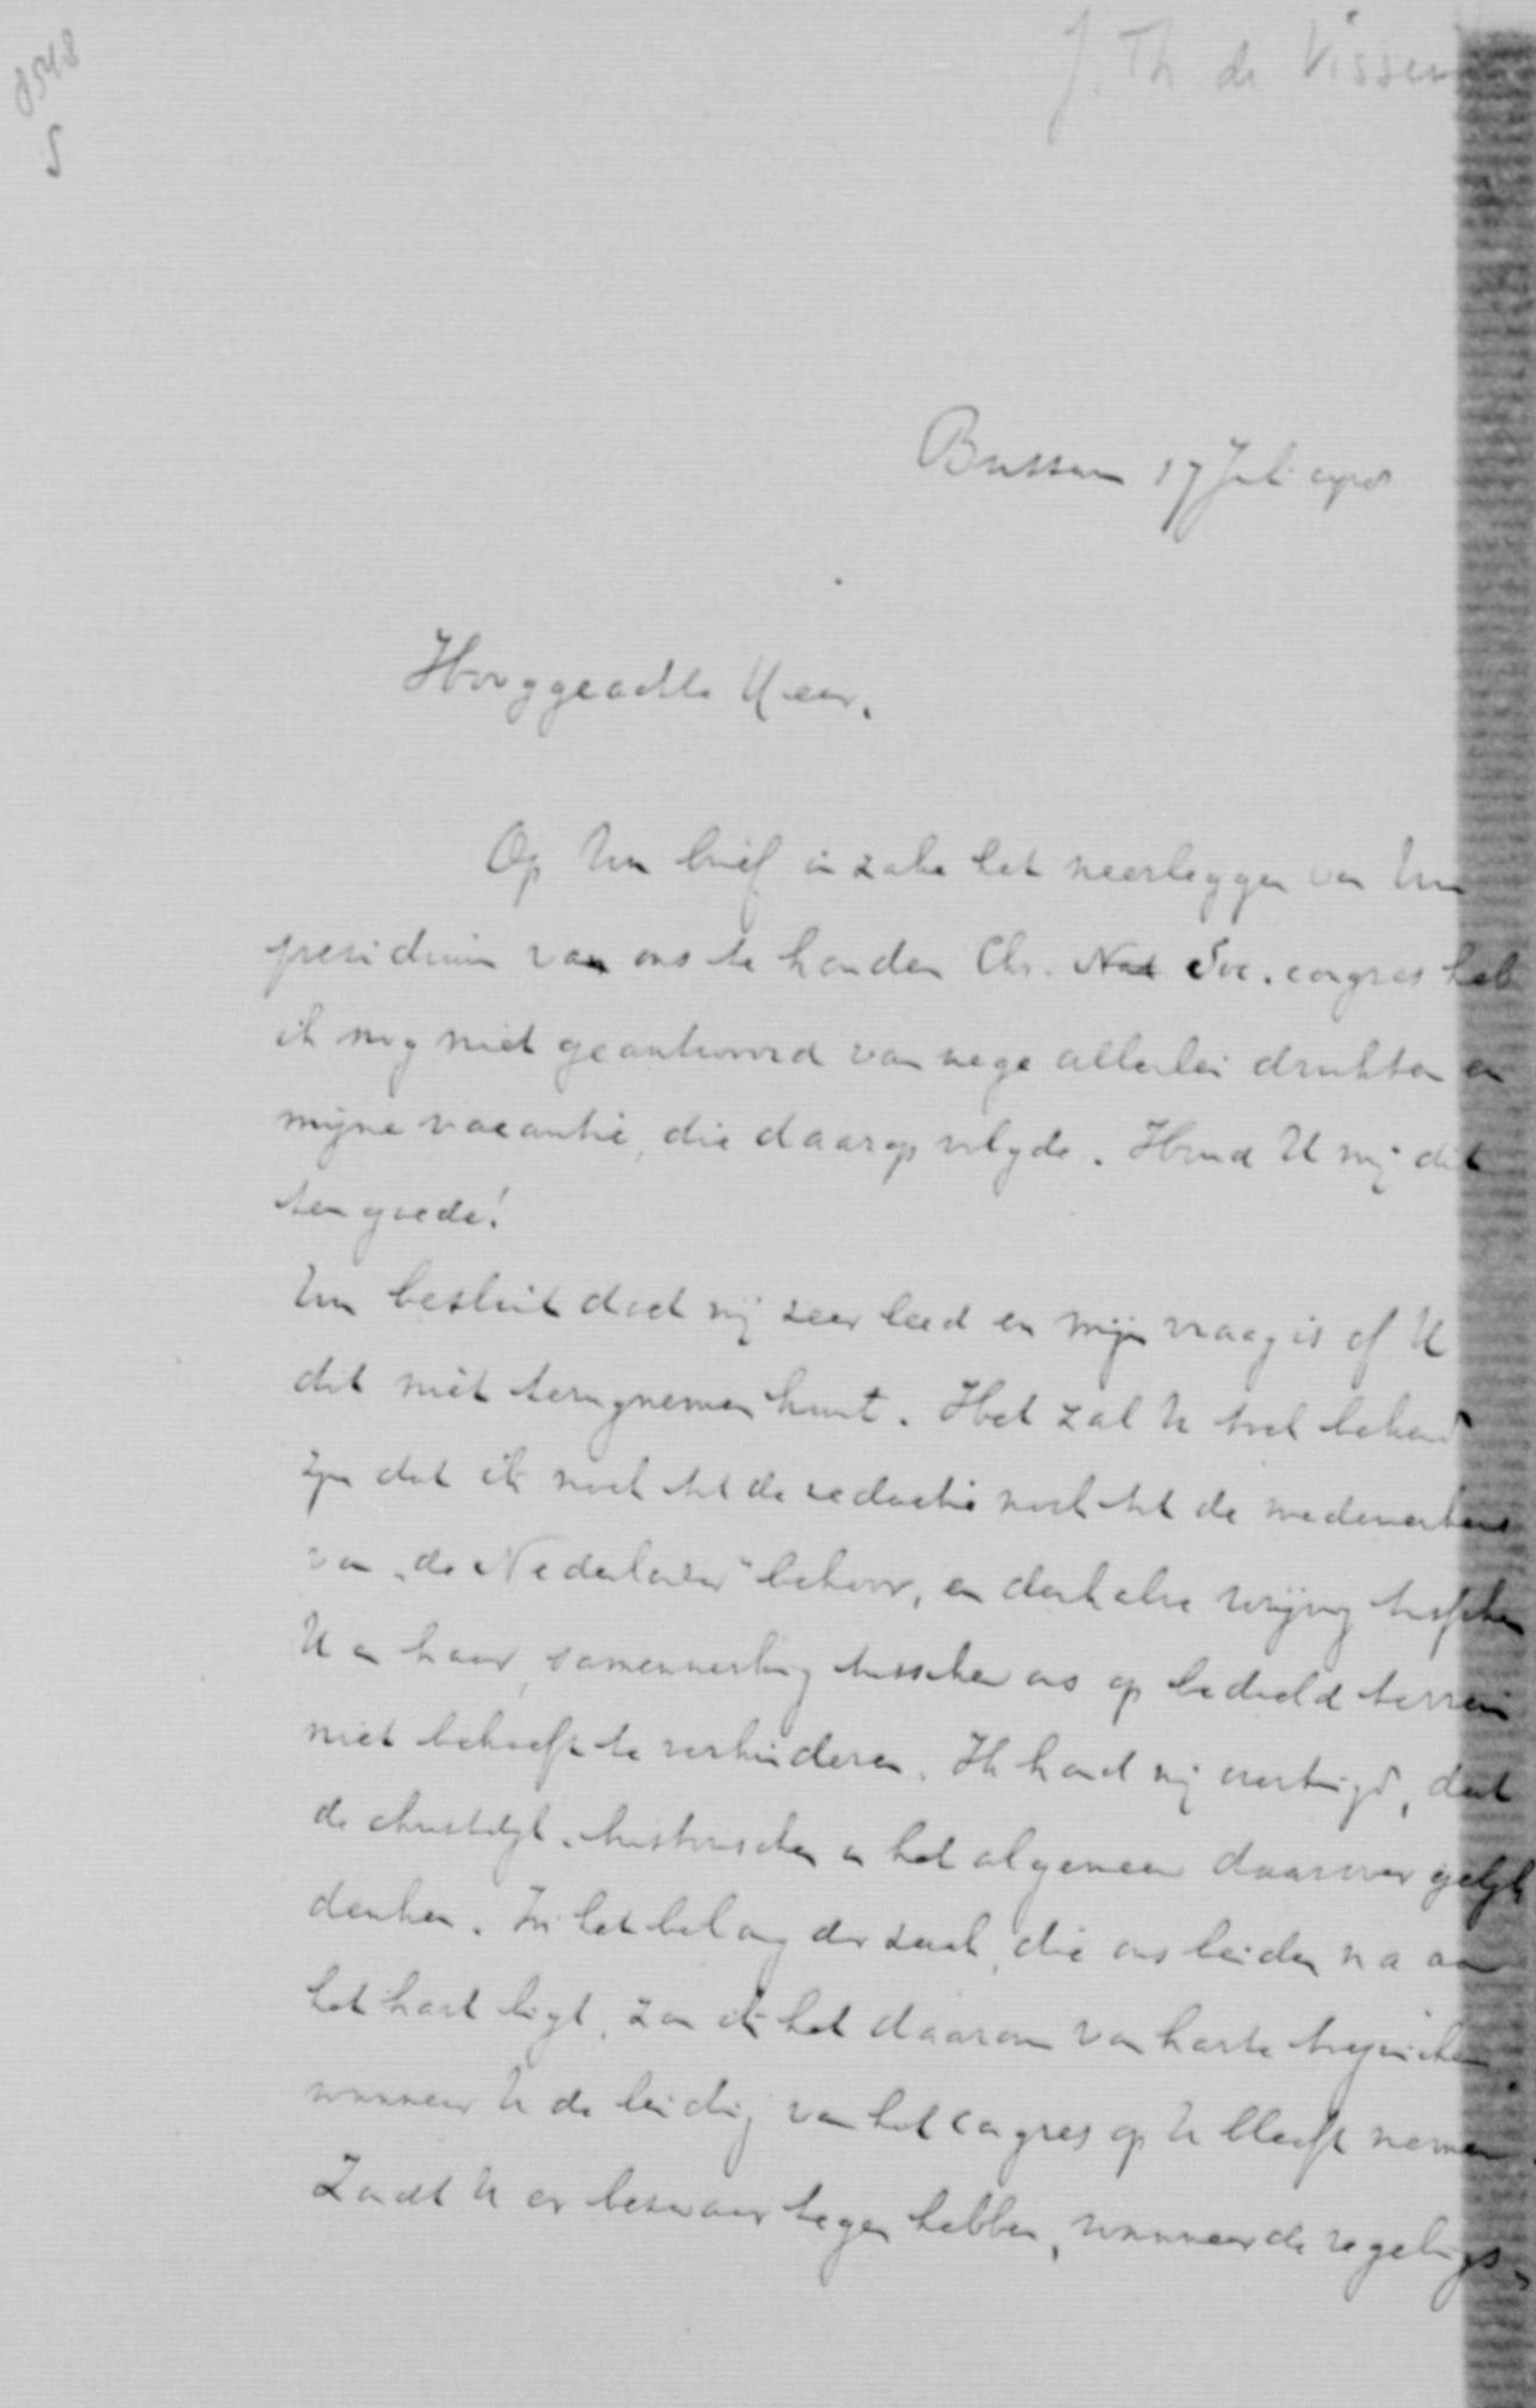 8548
S
J. Th de Visser
Bussum 17 Juli
Hooggeachte Heer.
Op Uw brief in zake het neerleggen van Uw
presidium van ons te houden Chr. Nat Soc. congres heb
ik nog niet geantwoord van wege allerlei drukten en
mijne vacantie, die daarop volgde. Houd U mij dit
ten goede!
Uw besluit doet mij zeer leed en mijn vraag is of U
dit niet terugnemen kunt. Het zal U toch bekend
zijn dat ik noch tot de redactie noch tot de medewerkers
van "de Nederlander" behoor, en derhalve wrijving tusschen
U en haar, samenwerking tusschen ons op bedoeld terrein
niet behoeft te verhinderen. Ik houd mij overtuigd, dat
de christelijk-historischen in het algemeen daarover gelijk
denken. In het belang der zaak, die ons beiden na aan
het hart ligt, zou ik het daarom van harte toejuichen
wanneer U de leiding van het congres op U bleeft nemen.
Zoudt U er bezwaar tegen hebben, wanneer de regelings-